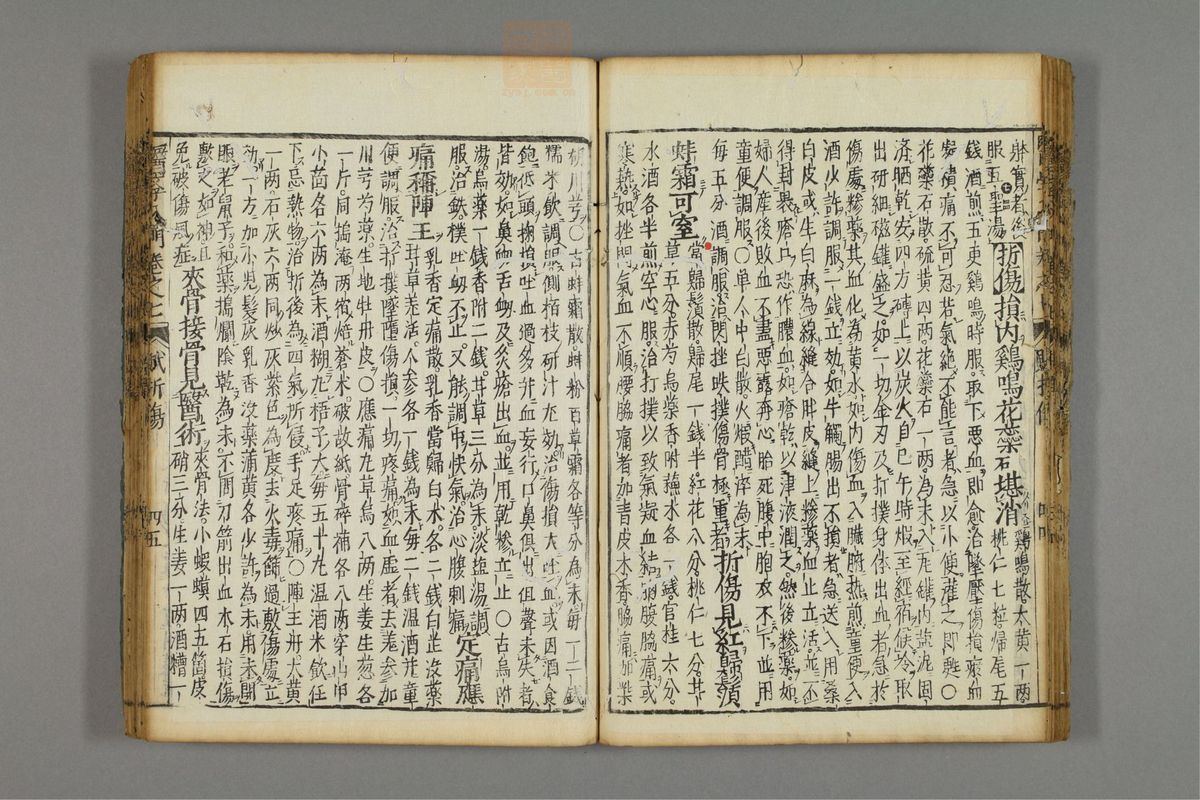 服五聖湯折傷損內鷄鳴花蕊石堪消鷄鳴散大黃一兩
錢酒煎五更鷄鳴時服取下惡血即愈治壓傷損瘀血
痛不可忍若氣絕不能言者急以小便灌之即甦〇
花藥石散硫黃四兩花藥石一兩為末入瓦罐內
出研細磁罐盛之如一切金刃及折撲身体出血者急於
傷處糝藥其血化為黃水如內傷血入臟腑熱煎童便入
酒少許調服一錢立効如牛觸腸出不損者急送入用桑
白皮或生白麻為線縫合肚皮縫上糝藥血止立活並不
得封裹瘡口恐作膿血如瘡乾以津液潤之然後糝藥如
婦人產後敗血不盡惡露奔心胎死腹中胞衣不下並用
童便調服〇单人中白散火煅醋淬為末
每五分酒調服治閃挫跌撲傷骨極重者折傷見紅歸鬚
蚌霜可窒當歸鬚散歸尾一錢半紅花八分桃仁七分甘
草五分赤芍烏藥香附蘇木各一錢官桂六分
水酒各半煎空心服治打撲以致氣凝血結胸腹脇痛或
寒熱如挫閃氣血不順腰脇痛者加青皮木香脇痛加柴
胡川芎〇古蚌霜散蚌粉百草霜各等分為末每一二錢
糯米飲調服側栢枝研汁尤効治傷損大吐血或因酒食
飽低頭掬損吐血過多并血妄行口鼻俱出但聲未失者
皆効如鼻衂舌衂及灸瘡出血並用乾糝立止〇古烏附
湯烏藥一錢香附二錢甘草三分為末淡盐湯調
服治跌撲吐衂不止又能調中快氣治心腹刺痛定痛應
痛稱陣王乳香定痛散乳香當歸白朮各二錢白芷沒藥
甘草羌活人參各一錢為末每二錢温酒并童
便調服治打撲墜墮傷損一切疼痛如血虛者去羌參加
川芎芍藥生地牡丹皮〇應痛丸草烏八兩生姜生葱各
一斤同搗淹兩宿焙蒼朮破故紙骨碎補各八兩穿山甲
小茴各六兩為末酒糊丸梧子大每五十丸温酒米飲任
下忌熱物治折後為四氣所侵手足疼痛〇陣王丹大黃
一兩石灰六兩同炒灰紫色為度去火毒篩過敷傷處立
効一方加小兒髮灰乳香沒藥蒲黃各少許為末用未開
眼老鼠子和藥搗爛陰乾為末不問刀箭出血木石損傷
敷之如神且
免破傷風症夾骨接骨見醫術夾骨法小蝦蟆四五箇皮
硝三分生姜一兩酒糟一
賦折傷
四五